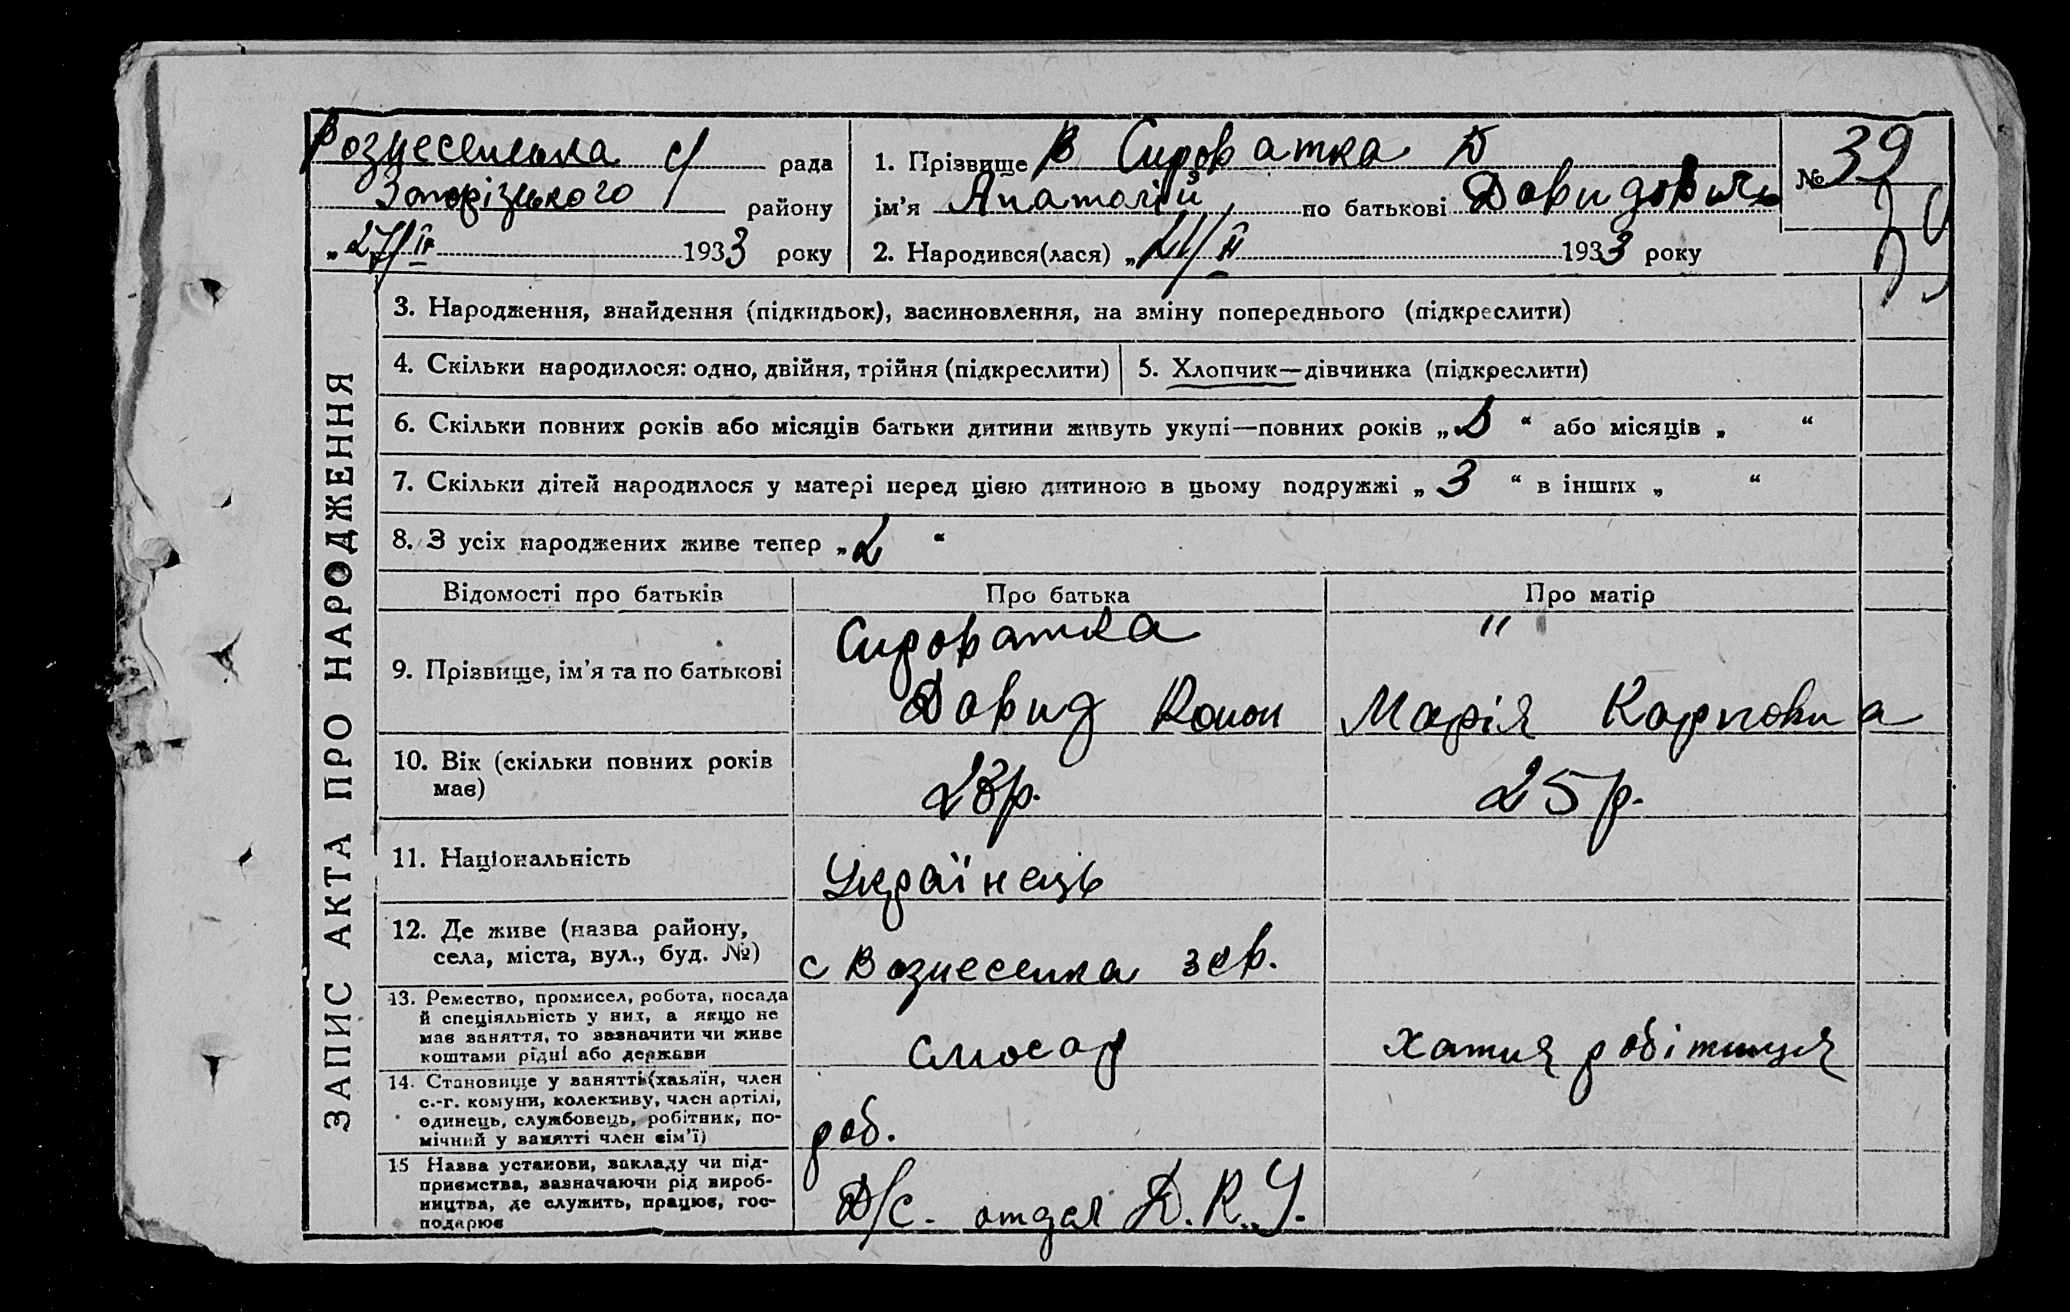 Вознесенська с/ рада
Запорізького району
„27/ІІ 1933 року
1. Прізвище В Сироватка Д
ім’я Анатолій по батькові Давидович
2. Народився(лася) „21/ІІ 1933 року
№ 39
ЗАПИС АКТА ПРО НАРОДЖЕННЯ
3. Народження, знайдення (підкидьок), засиновлення, на зміну попереднього (підкреслити)
4. Скільки народилося: одно, двійня, трійня (підкреслити)
5. Хлопчик—дівчинка (підкреслити)
6. Скільки повних років або місяців батьки дитини живуть укупі—повних років „ “ або місяців „ “
7. Скільки дітей народилося у матері перед цією дитиною в цьому подружжі „3 “ в інших „ “
8. З усіх народжених живе тепер „2 “
Відомості про батьків
Про батька
Про матір
9. Прізвище, ім’я та по батькові
Сироватка
Давид Конон
"
Марія Карповна
10. Вік (скільки повних років
має)
28р.
25р.
11. Національність
Українець
12. Де живе (назва району,
села, міста, вул., буд. №)
с Вознесенка
13. Ремество, промисел, робота, посада
й спеціяльність у них, а якщо не
має заняття, то зазначити чи живе
коштами рідні або держави
слюсар
хатня робітниця
14. Становище у занятті (хазяїн, член
с.-г. комуни, колективу, член артілі,
одинець, службовець, робітник, по-
мічний у занятті член сім’ї)
роб.
15 Назва установи, закладу чи під-
приємства, зазначаючи рід вироб-
ництва, де служить, працює, гос-
подарює
Д/с. отдел Д. К. У.